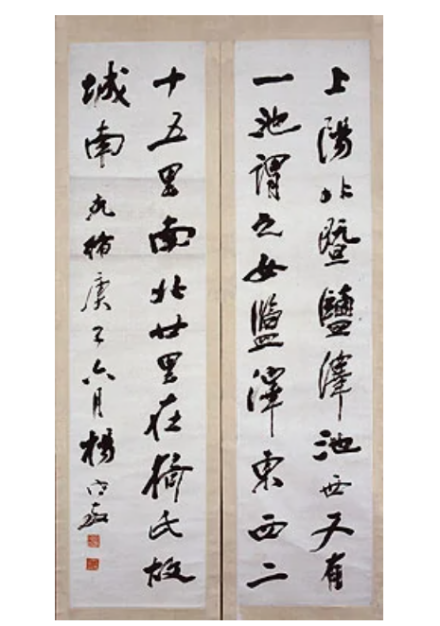 上陽北暨鹽澤池西又有
一池謂之女鹽澤東西二
十五里南北廿里在猗氏故
城南 光緒庚子六月楊守敬